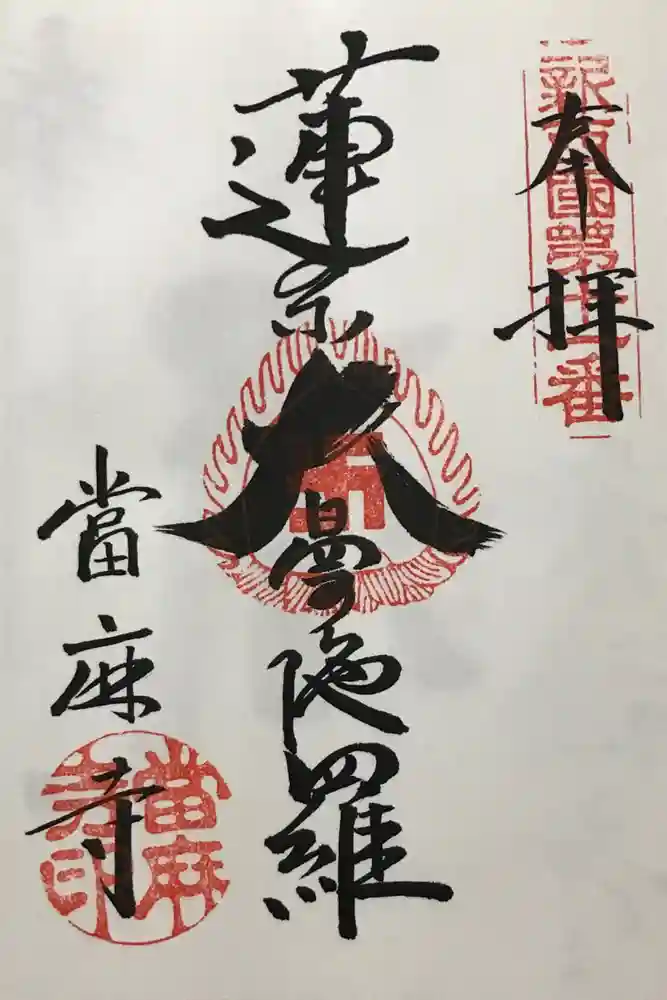 奉拝
新西國第十一番
蓮糸大曼陀羅
當麻寺
當麻寺印